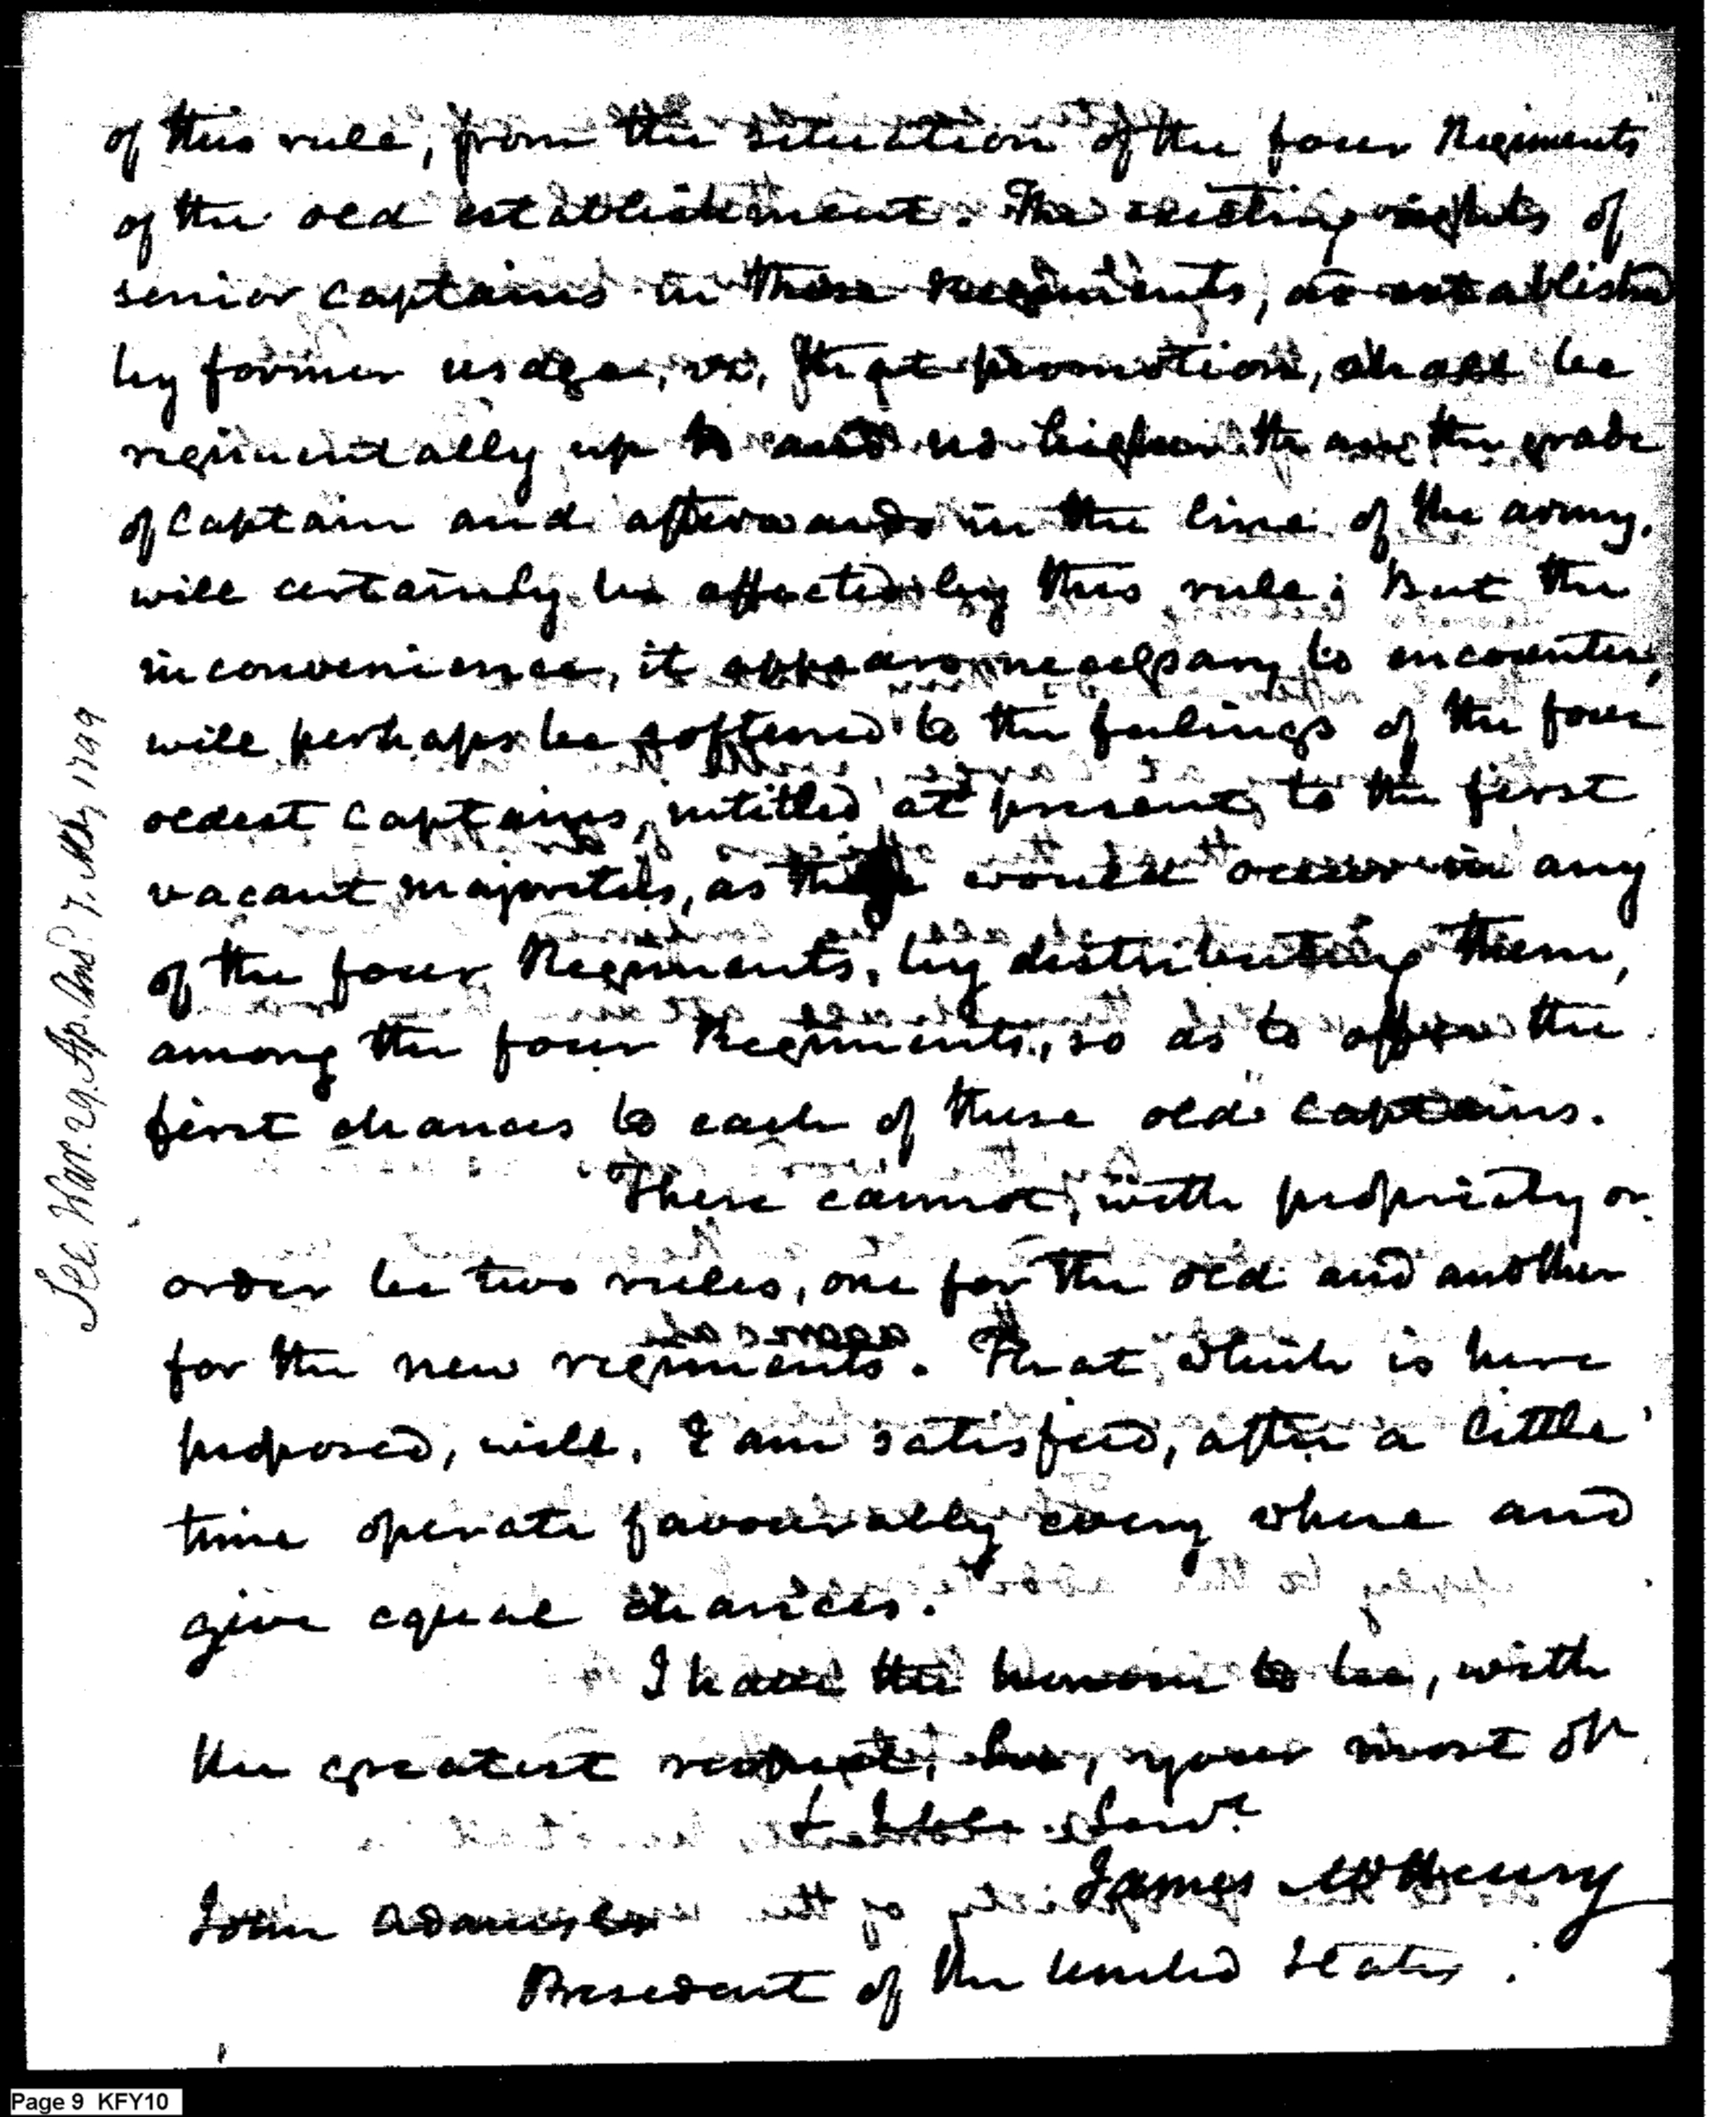 of this rule, from the situation of the four Regiments
of the old establishment. The existing rights of
senior captains in these regiments, as established
by former usage, viz. that promotion, shall be
regimentally up to and no higher than the grade
of Captain and afterwards in the line of the army.
will certainly be affected by this rule; But the
inconvenience, it appears necessary to encounter,
will perhaps be softened to the feelings of the four
oldest Captains, intitled at present, to the first
vacant majorities, as would occur in any
of the four Regiments, by distributing them,
among the four Regiments, so as to offer the
first chances to each of these old captains.
There cannot, with propriety or
order be two rules, one for the old and another
for the new regiments. That, which is here
proposed, will, I am satisfied, after a little
time operate favourably every where and
give equal chances.
I have the honour to be, with
the greatest respect, Sir, your most ob
& hble. Servt
James McHenry
John Adams
President of the United States.
Sec. War. 29. Ap. Ansd 7. May 1799
Page 9 KFY10